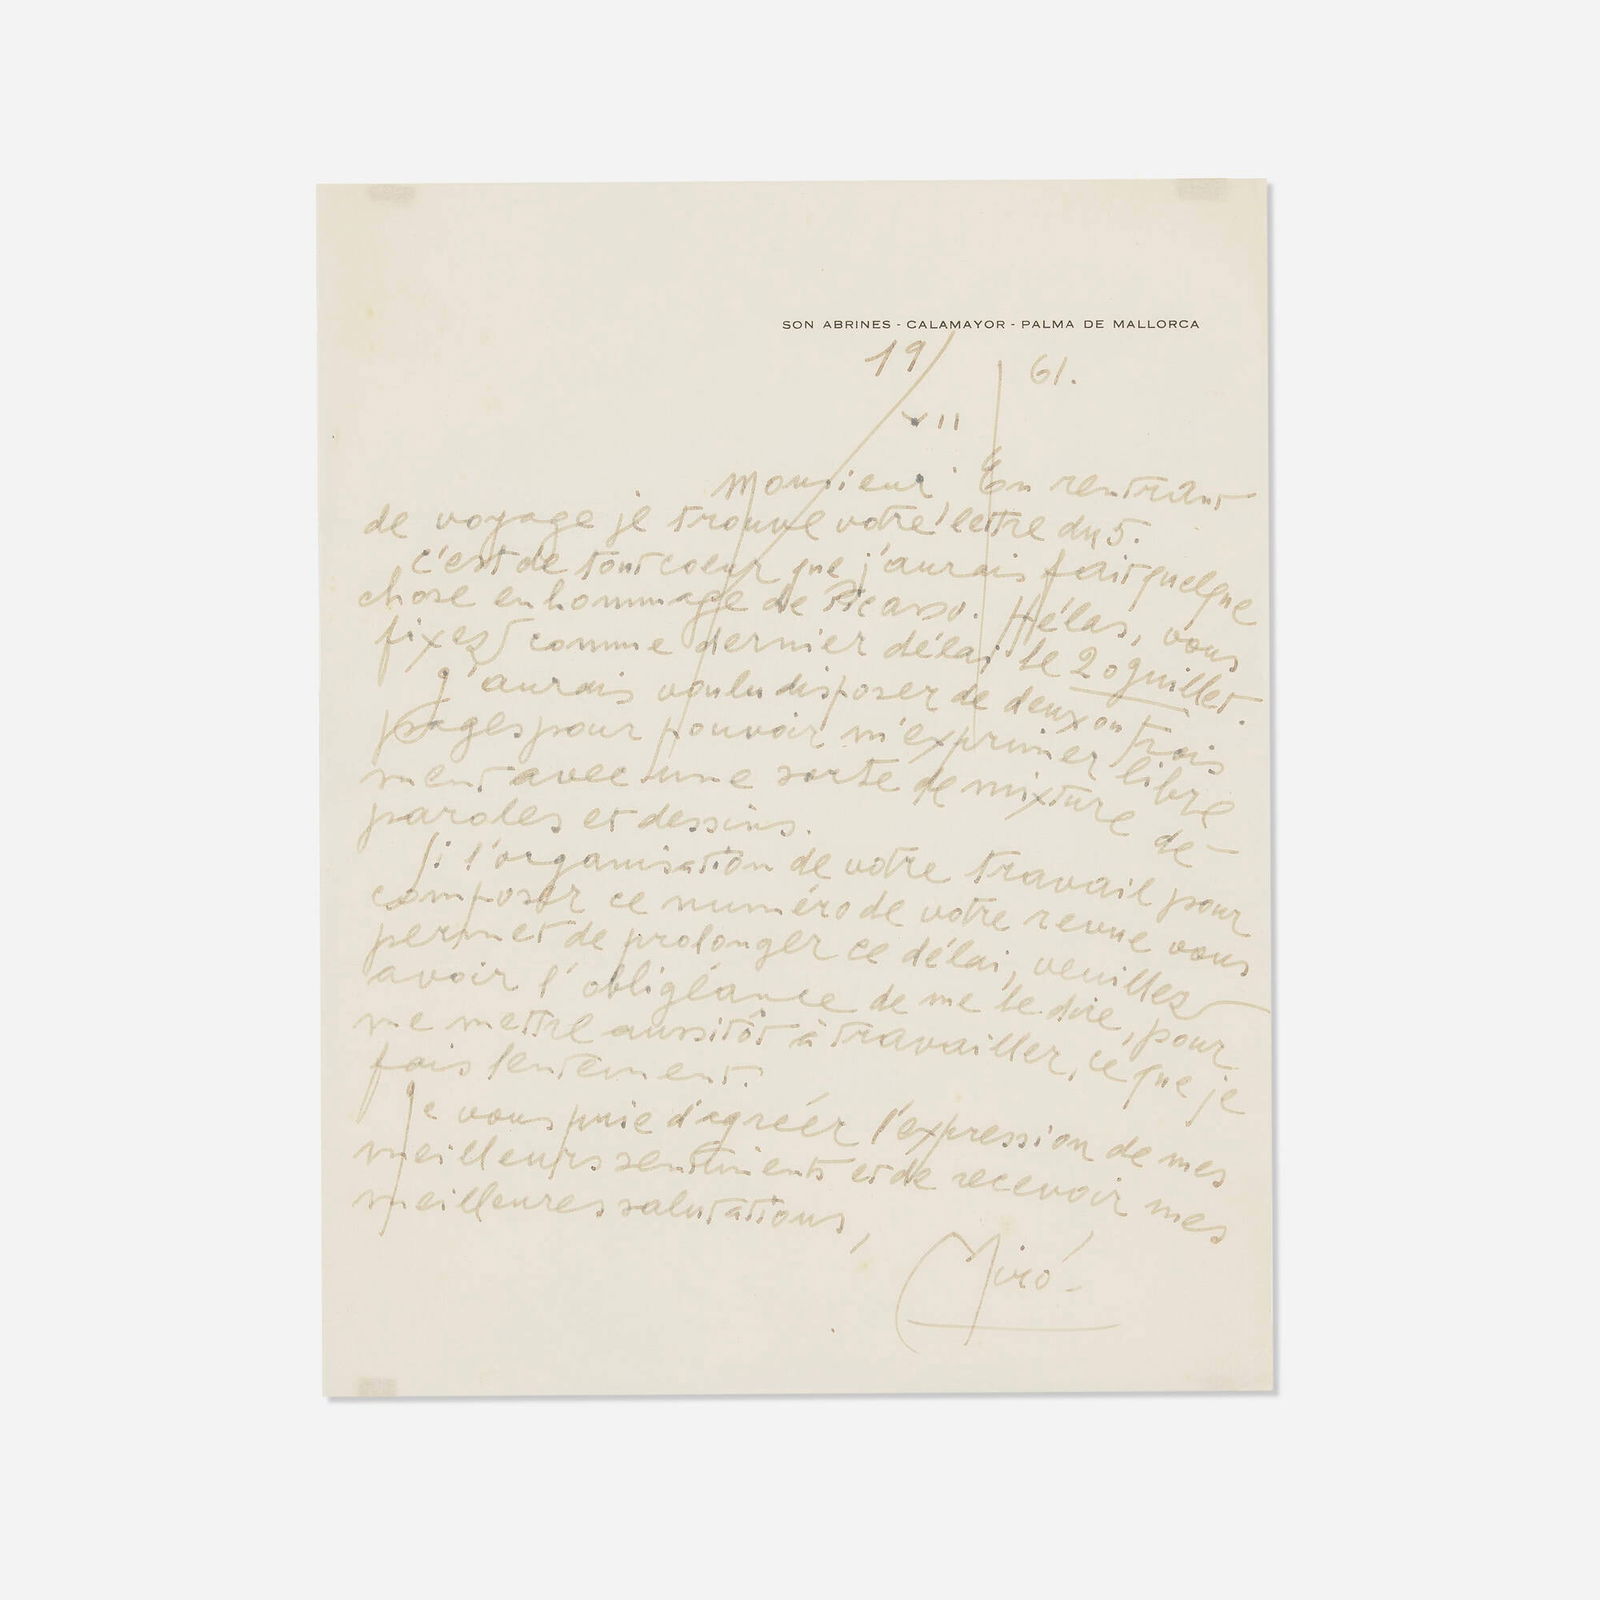 SON ABRINES - CALAMAYOR - PALMA DE MALLORCA
19/VII/61.
Monsieur, En rentrant
de voyage je trouve votre lettre du 5.
c'est de tout coeur que j'aurais fait quelque
chose en hommage de Picasso. Hélas, vous
fixez comme dernier délai le 20 guillet.
J'aurais voulu disposer de deux ou trois
pages pour pouvoir m'exprimer libre
ment avec une sorte de mixture de-
paroles et dessins.
Si l'organisation de votre travail pour
composer ce numéro de votre revue vous
permet de prolonger ce délai, veuillez
avoir l'obligéance de me le dire, pour
me mettre aussitôt à travailler, ce que je
fais lentement.
Je vous prie d'agréér l'expression de mes
meilleurs sentiments et de recevoir mes
meilleures salutations,
Miró-